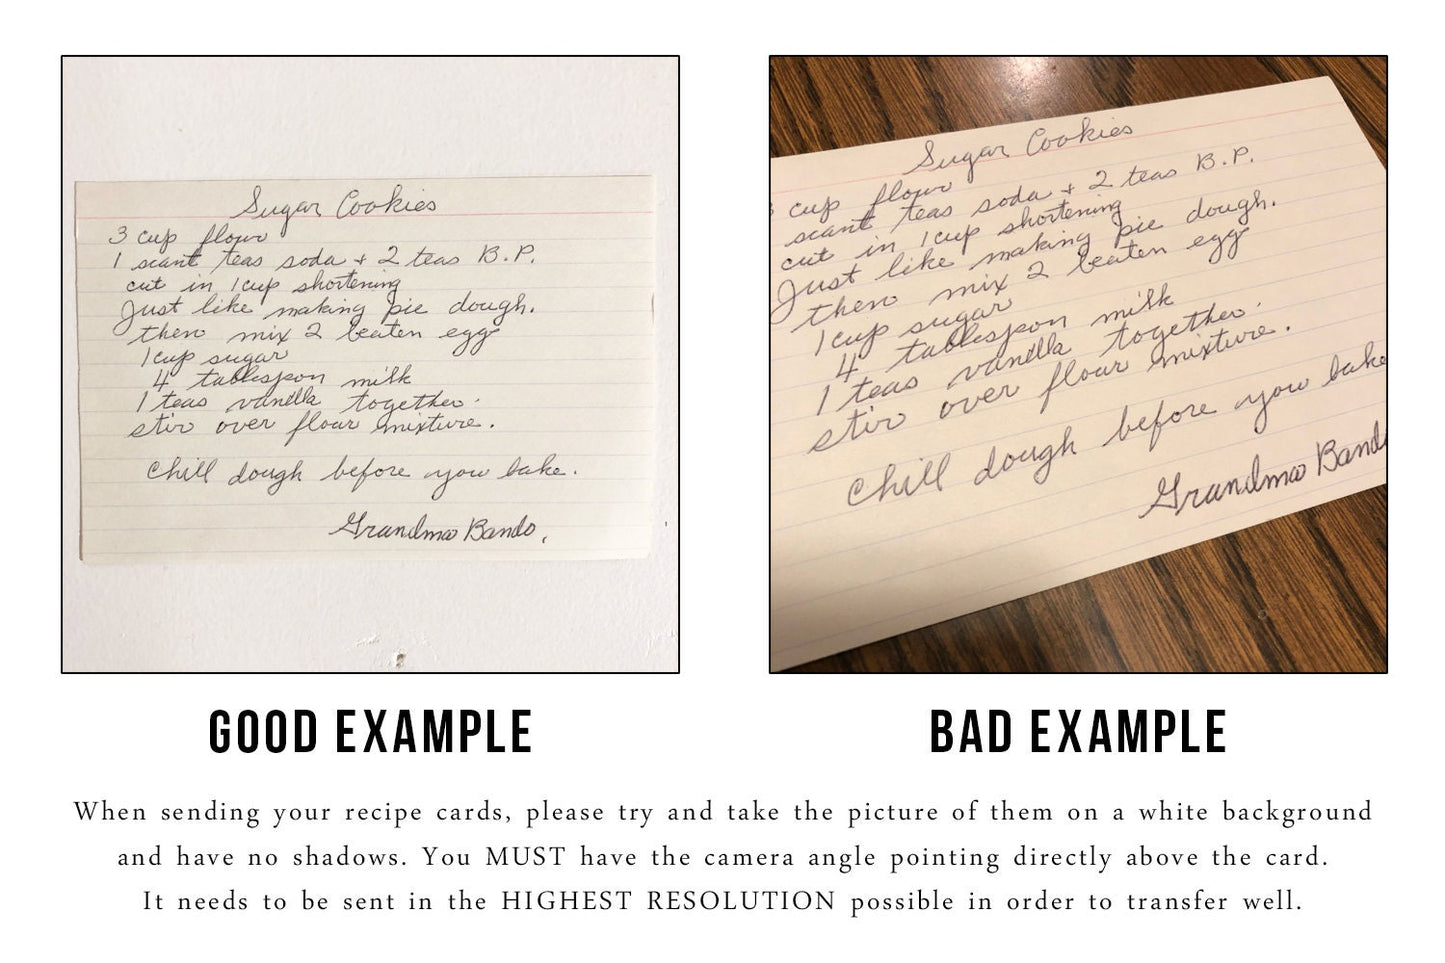 Sugar Cookies
3 cup flour
1 scant teas soda + 2 teas B.P.
cut in 1 cup shortening
Just like making pie dough.
then mix 2 beaten egg
1 cup sugar
4 tablespon milk
1 teas vanilla together.
stir over flour mixture.
Chill dough before you bake.
Grandma Bando,
GOOD EXAMPLE
Sugar Cookies
3 cup flour
scant teas soda + 2 teas B.P.
cut in 1 cup shortening
Just like making pie dough.
then mix 2 beaten egg
1 cup sugar
4 tablespon milk
1 teas vanilla together.
stir over flour mixture.
Chill dough before you bake
Grandma Band
BAD EXAMPLE
When sending your recipe cards, please try and take the picture of them on a white background
and have no shadows. You MUST have the camera angle pointing directly above the card.
It needs to be sent in the HIGHEST RESOLUTION possible in order to transfer well.